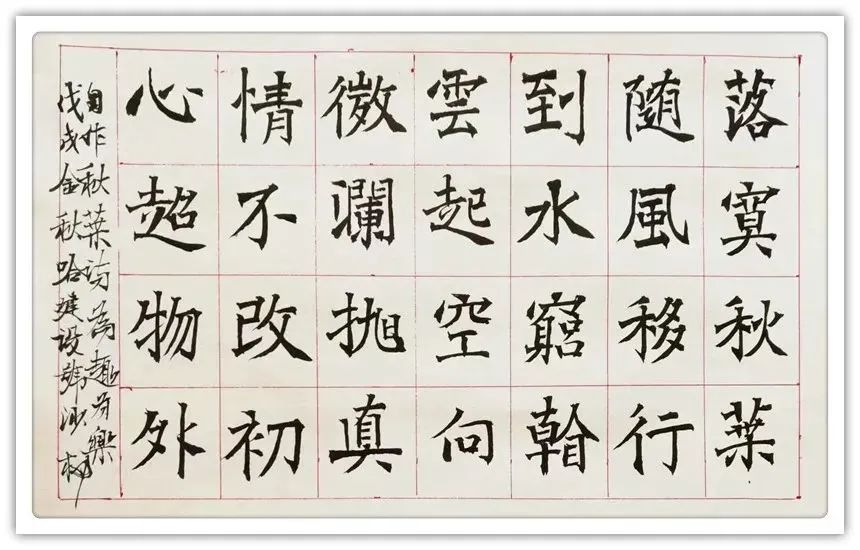 落寞秋葉
随風移行
到水窮䀍
雲起空向
微瀾抛真
情不改初
心超物外
自作秋葉为趣为樂
戊戌金秋哈建设